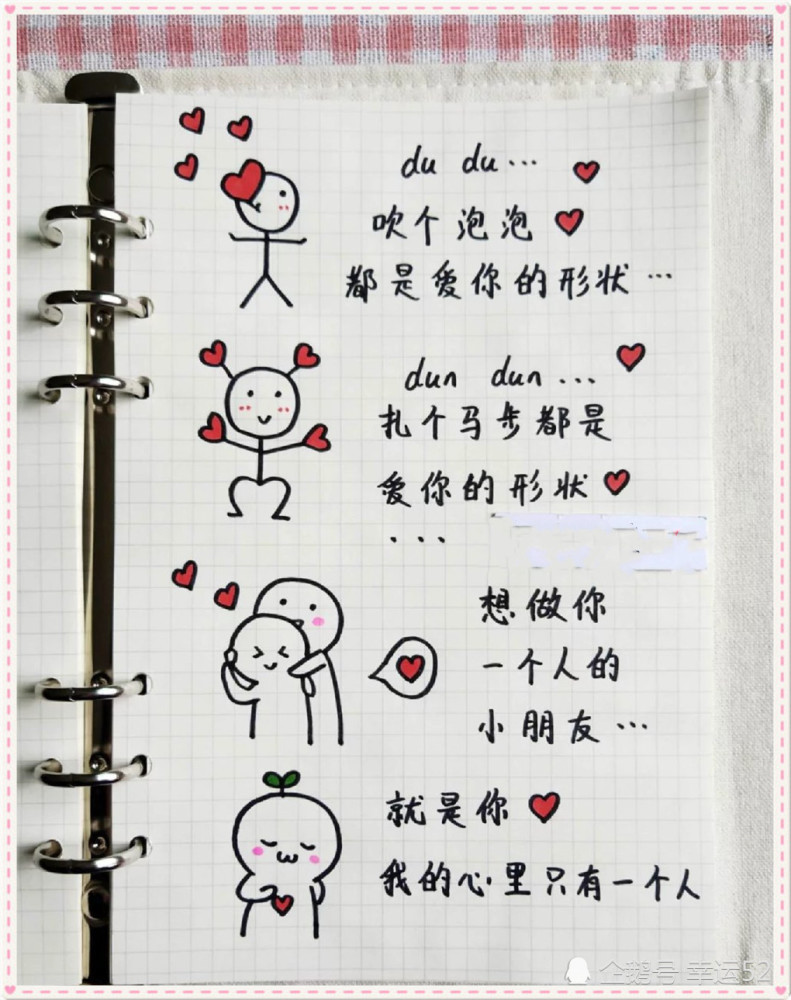 du du...
吹个泡泡
都是爱你的形状...
dun dun...
扎个马步都是
爱你的形状
...
想做你
一个人的
小朋友...
就是你
我的心里只有一个人
企鹅号 幸运52